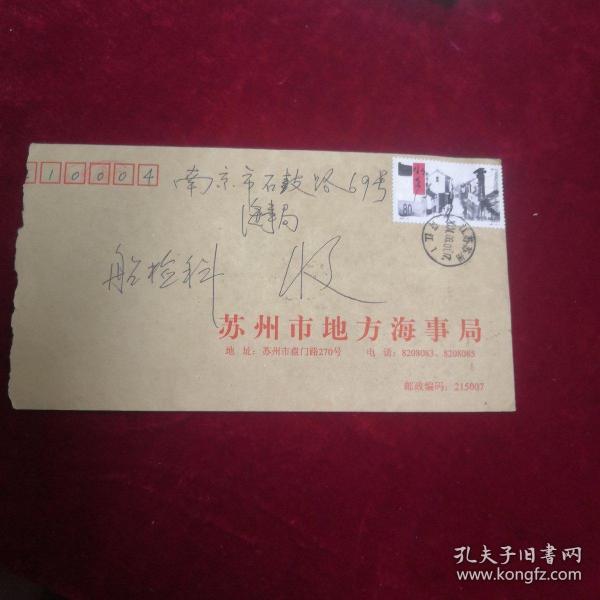 210004 南京市石鼓路69号
海事局
船检科 收
80
苏州市地方海事局
地 址：苏州市盘门路270号 电 话：8208083、8208085
邮政编码：215007
孔夫子旧书网
www.kongfz.com